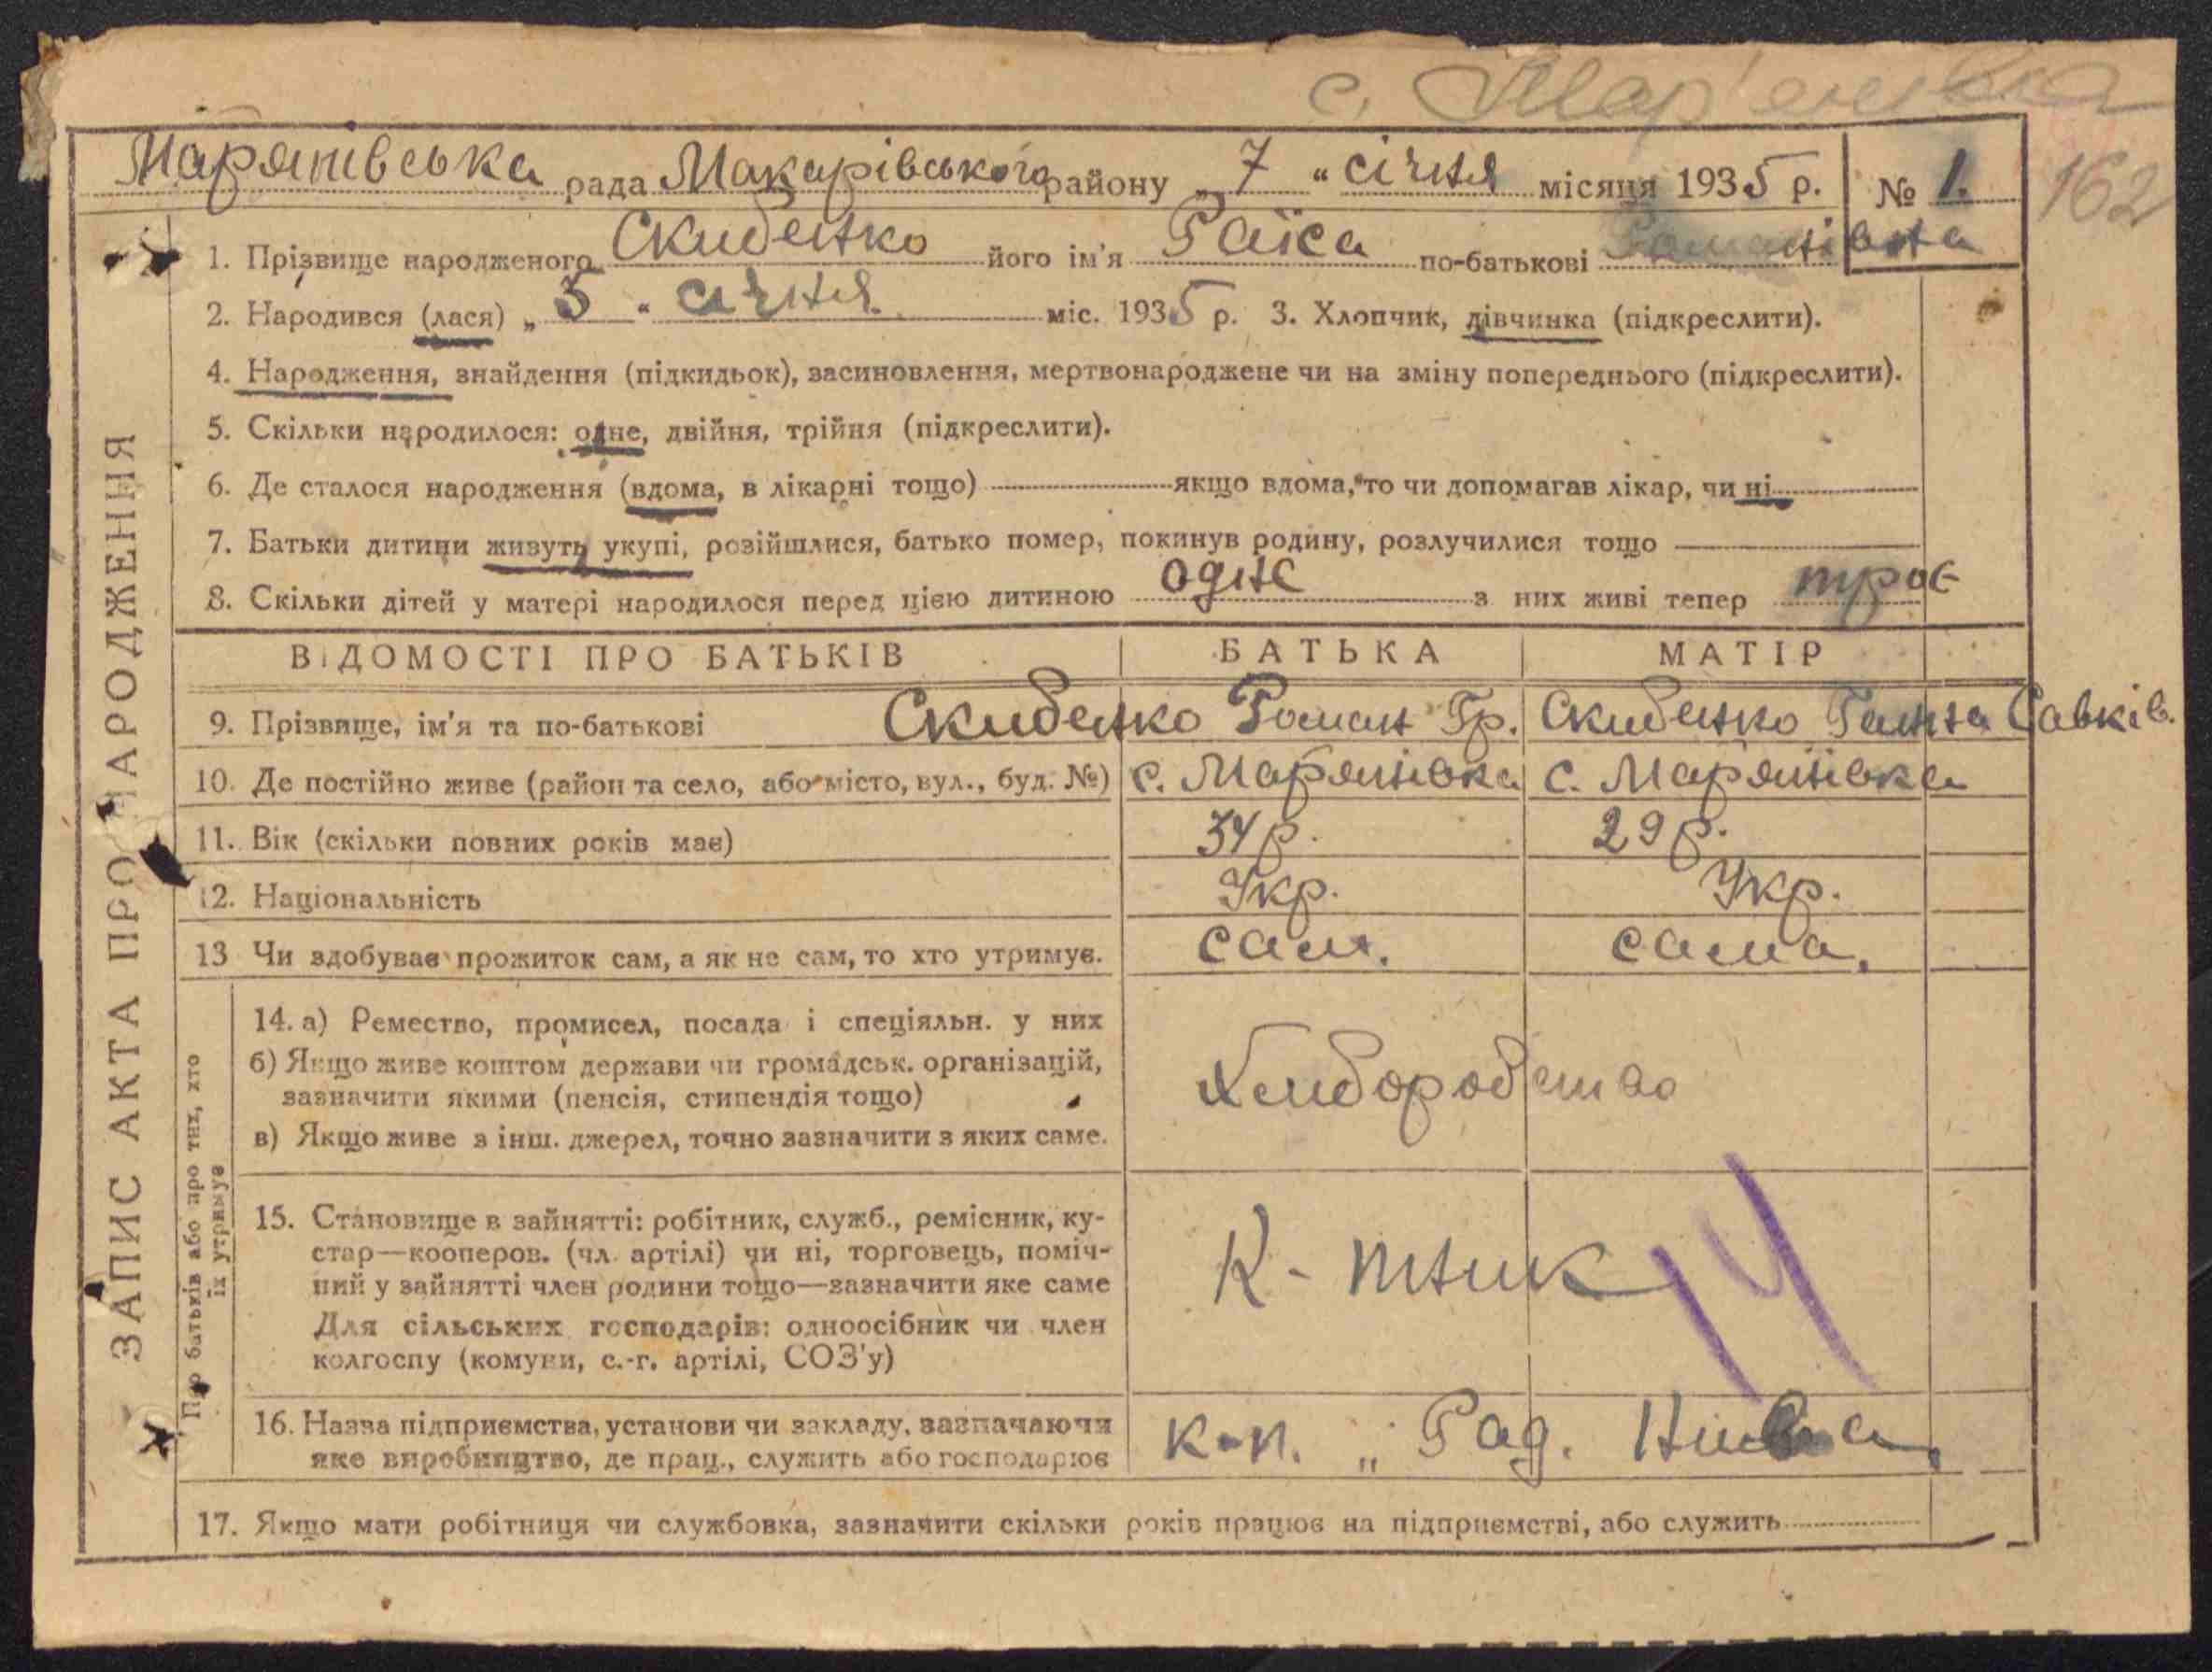 с. Мар'янівка
162
Марянівська рада Макарівського району „ 7 " січня місяця 1935 р. № 1.
1. Прізвище народженого Скибенко його ім'я Раїса по-батькові Романівна
2. Народився (лася) „ 5 " січня міс. 1935 р. 3. Хлопчик, дівчинка (підкреслити).
4. Народження, знайдення (підкидьок), засиновлення, мертвонароджене чи на зміну попереднього (підкреслити).
5. Скільки народилося: одне, двійня, трійня (підкреслити).
6. Де сталося народження (вдома, в лікарні тощо) якщо вдома, то чи допомагав лікар, чи ні
7. Батьки дитини живуть укупі, розійшлися, батько помер, покинув родину, розлучилися тощо
8. Скільки дітей у матері народилося перед цією дитиною одне з них живі тепер троє
ВІДОМОСТІ ПРО БАТЬКІВ БАТЬКА МАТІР
9. Прізвище, ім'я та по-батькові Скибенко Роман Гр. Скибенко Ганна Савків.
10. Де постійно живе (район та село, або місто, вул., буд. №) с. Мар'янівка с. Мар'янівка
11. Вік (скільки повних років має) 34 р. 29 р.
12. Національність Укр. Укр.
13 Чи здобуває прожиток сам, а як не сам, то хто утримує. сам. сама.
14. а) Ремество, промисел, посада і спеціяльн. у них
б) Якщо живе коштом держави чи громадськ. організацій,
зазначити якими (пенсія, стипендія тощо)
Хлиборобство
в) Якщо живе з інш. джерел, точно зазначити з яких саме.
15. Становище в зайнятті: робітник, служб., ремісник, ку-
стар—кооперов. (чл. артілі) чи ні, торговець, поміч-
ний у зайнятті член родини тощо—зазначити яке саме
К-пник
14
Для сільських господарів: одноосібник чи член
колгоспу (комуни, с.-г. артілі, СОЗ'у)
16. Назва підприємства, установи чи закладу, зазначаючи
яке виробництво, де прац., служить або господарює
к-п. „ Рад. Нива
17. Якщо мати робітниця чи службовка, зазначити скільки років працює на підприємстві, або служить
ЗАПИС АКТА ПРО НАРОДЖЕННЯ
Про батьків або про тих, хто
їх утримує